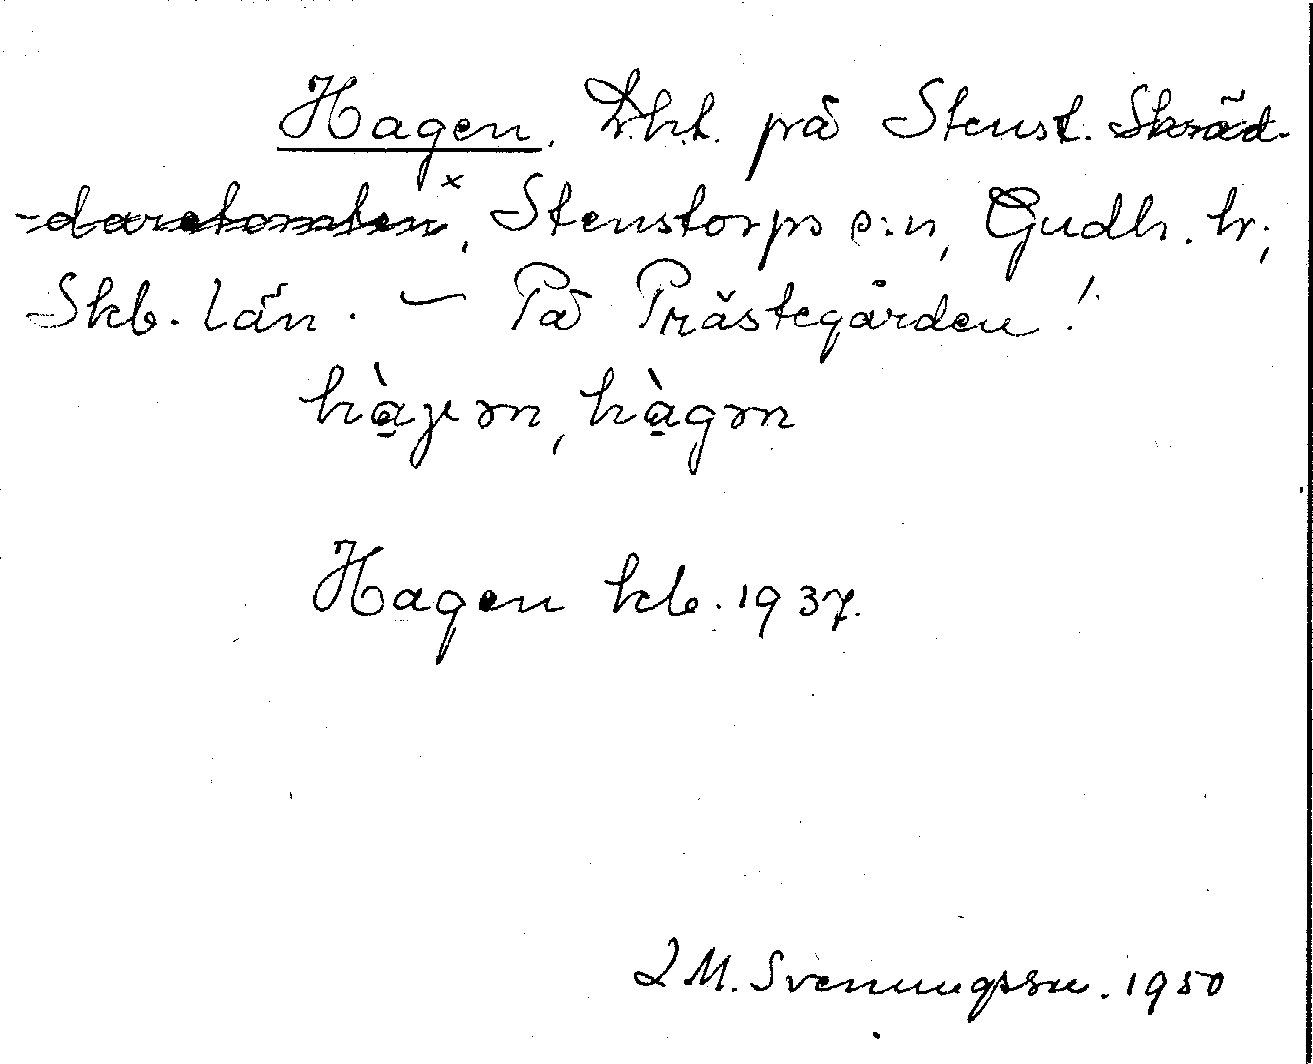 Hagen. Lht. på Stenst. Skräd-
daretomten x, Stenstorps s:n, Gudh. hr;
Skb. län. — På Prästegården!
hàgen, hàgen
Hagen kb. 1937.
L M. Svenungsson. 1950